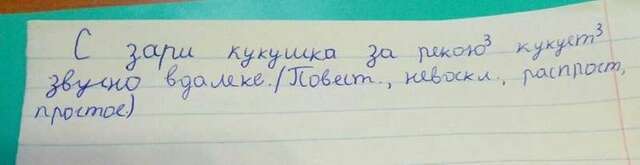 С зари кукушка за рекою³ кукует³
звучно вдалеке. (Повест., невоскл., распрост,
простое)